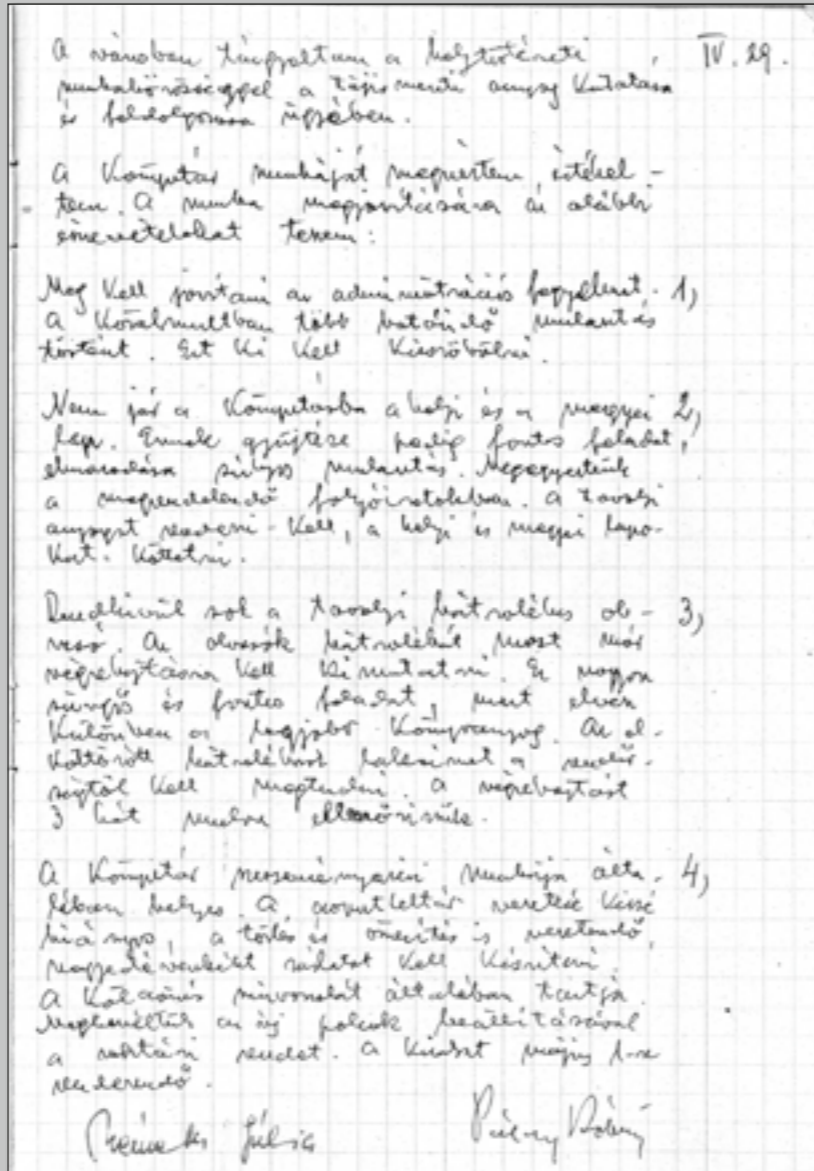 A városban tárgyaltam a helytörténeti IV. 29.
munkaközösséggel a tájismereti anyag kutatása
és feldolgozása ügyében.
A könyvtár munkáját megnéztem, értékel-
tem. A munka megjavítására az alábbi
észrevételeket teszem:
Meg kell javítani az adminisztrációs fegyelmet. 1,
A közelmúltban több mulasztás
történt. Ezt ki kell küszöbölni.
Nem jár a könyvtárba a helyi és a megyei 2,
lap. Ennek gyűjtése pedig fontos feladat,
elmaradása súlyos mulasztás. Megegyeztünk
a megrendelendő folyóiratokban. A tavalyi
anyagot rendezni kell, a helyi és megyei lapo-
kat köttetni.
Rendkívül sok a tavalyi hátralékos ol- 3,
vasó. Az olvasók hátralékát most már
végrehajtásra kell kimutatni. Ez nagyon
sürgős és fontos feladat, mert elvész
különben a legjobb könyvanyag. Az el-
költözött hátralékosok lakcímét a rendőr-
ségtől kell megtudni. A végrehajtást
3 hét mulva ellenőrizzük.
A könyvtár munkája álta- 4,
lában helyes. A vezetése kissé
hiányos, a törlés is vezetendő,
kell készíteni
A kölcsönzés színvonalát általában tartja.
az új polcok beállításával
a raktári rendet. A május 1-re
rendezendő.